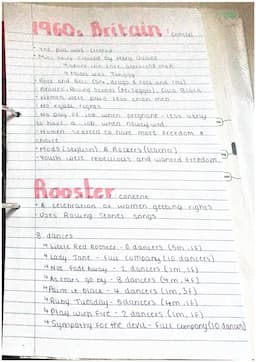 1960s Britain context
• The pill was created
• Mini skirt created by Mary Quant
Model was Twiggy
• Rock and Roll (sex, drugs & rock and roll)
• Beatles, Rolling Stones (Mick Jagger), Cilla Black
• Women were paid less than men
• No equal rights
• No pay of job when pregnant - less likely
to have a job when
• Women started to have more freedom &
choice
• Mods (stylish) & Rockers
• Youth were rebellious and wanted freedom
Rooster context
• A celebration of women getting rights
• Uses Rolling Stones songs
8 dances
Little Red Rooster - 6 dancers (5m, 1f)
Lady Jane - full company (10 dancers)
Not Fade Away - 2 dancers (1m, 1f)
As tears go by - 8 dancers (4m, 4f)
Paint it black - 4 dancers (1m, 3f)
Ruby Tuesday - 5 dancers (4m, 1f)
Play with Fire - 2 dancers (1m, 1f)
Sympathy for the devil - Full company (10 dancers)